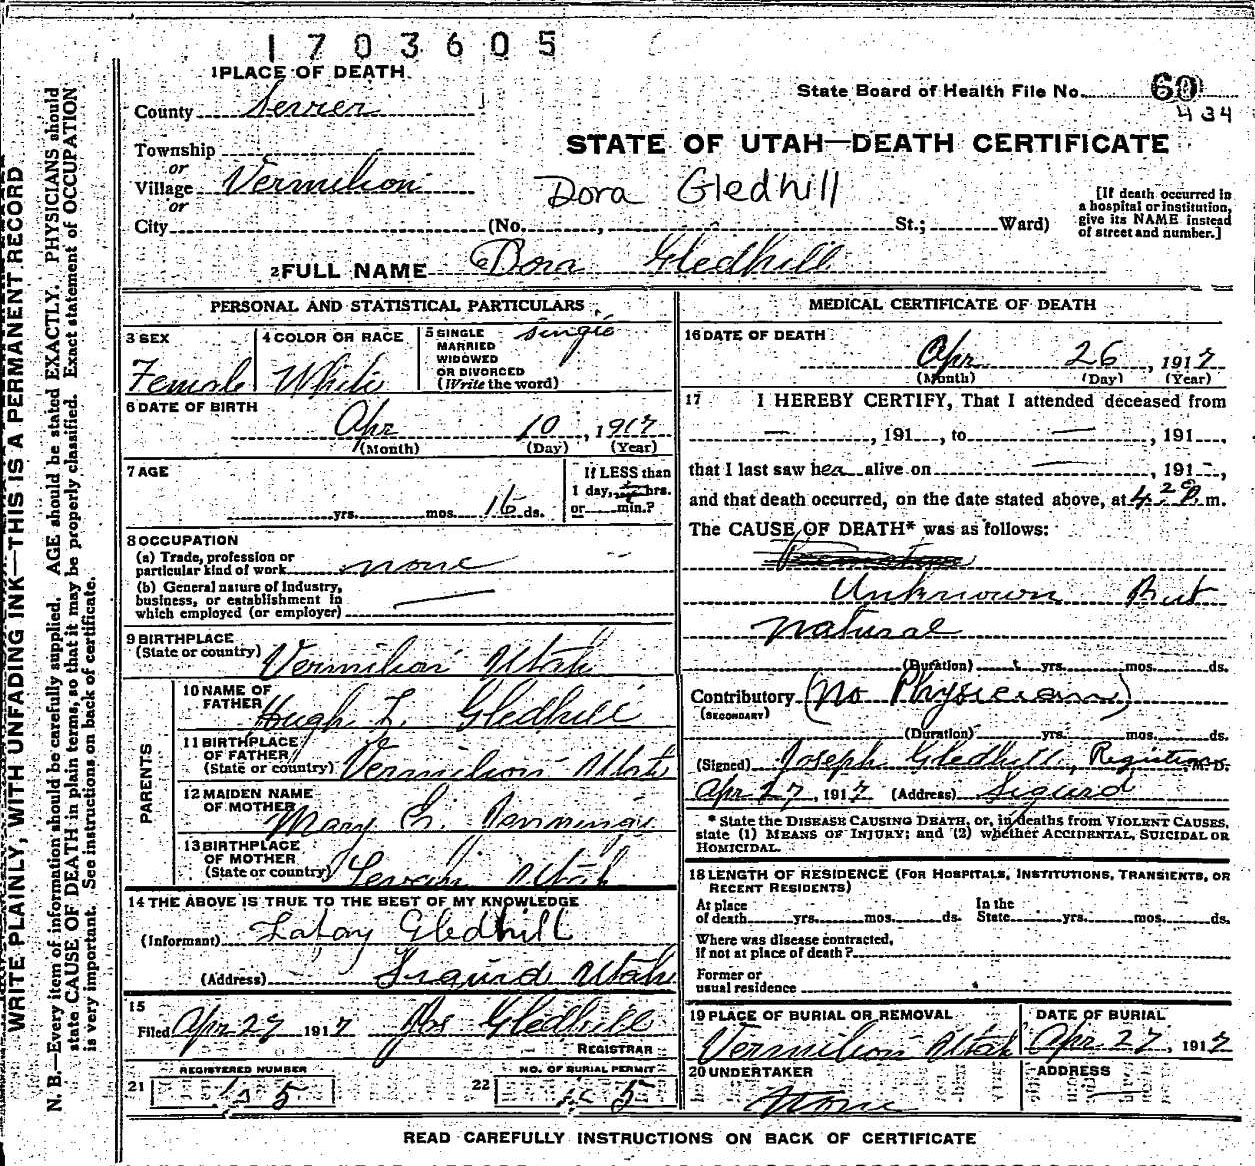 1703605
1 PLACE OF DEATH.
County Sevier
State Board of Health File No. 60
434
Township
or
Village Vermilion
or
City
STATE OF UTAH—DEATH CERTIFICATE
Dora Gledhill
[If death occurred in
a hospital or institution,
give its NAME instead
of street and number.]
(No. , St.; Ward)
2 FULL NAME Dora Gledhill
PERSONAL AND STATISTICAL PARTICULARS
3 SEX
Female
4 COLOR OR RACE
White
5 SINGLE
MARRIED
WIDOWED
OR DIVORCED
(Write the word)
single
6 DATE OF BIRTH
Apr 10, 1917
(Month) (Day) (Year)
7 AGE
yrs. mos. 16 ds.
If LESS than
1 day, hrs.
or min.?
8 OCCUPATION
(a) Trade, profession or
particular kind of work none
(b) General nature of Industry,
business, or establishment in
which employed (or employer) —
9 BIRTHPLACE
(State or country) Vermilion Utah
PARENTS
10 NAME OF
FATHER Hough L. Gledhill
11 BIRTHPLACE
OF FATHER
(State or country) Vermilion Utah
12 MAIDEN NAME
OF MOTHER Mary E.
13 BIRTHPLACE
OF MOTHER
(State or country) Levan Utah
14 THE ABOVE IS TRUE TO THE BEST OF MY KNOWLEDGE
(Informant) Gledhill
(Address) Sigurd Utah
15
Filed Apr 29 1917 Jos Gledhill
REGISTRAR
REGISTERED NUMBER
21 5
NO. OF BURIAL PERMIT
22 5
MEDICAL CERTIFICATE OF DEATH
16 DATE OF DEATH
Apr 26, 1917
(Month) (Day) (Year)
17 I HEREBY CERTIFY, That I attended deceased from
—, 191 , to —, 191 ,
that I last saw her alive on —, 191 -,
and that death occurred, on the date stated above, at 4 20 P. m.
The CAUSE OF DEATH* was as follows:
Unknown But
Natural
(Duration) yrs. mos. ds.
Contributory (No Physician)
(SECONDARY)
(Duration) yrs. mos. ds.
(Signed) Joseph Gledhill, Registrar M.D.
Apr 27, 1917 (Address) Sigurd
* State the DISEASE CAUSING DEATH, or, in deaths from VIOLENT CAUSES,
state (1) MEANS OF INJURY; and (2) whether ACCIDENTAL, SUICIDAL OR
HOMICIDAL.
18 LENGTH OF RESIDENCE (FOR HOSPITALS, INSTITUTIONS, TRANSIENTS, OR
RECENT RESIDENTS)
At place
of death yrs. mos. ds.
In the
State yrs. mos. ds.
Where was disease contracted,
if not at place of death?
Former or
usual residence
19 PLACE OF BURIAL OR REMOVAL
Vermilion Utah
DATE OF BURIAL
Apr 27, 1917
20 UNDERTAKER
None
ADDRESS
—
READ CAREFULLY INSTRUCTIONS ON BACK OF CERTIFICATE
WRITE PLAINLY, WITH UNFADING INK—THIS IS A PERMANENT RECORD
N. B.—Every item of information should be carefully supplied. AGE should be stated EXACTLY. PHYSICIANS should
state CAUSE OF DEATH in plain terms, so that it may be properly classified. Exact statement of OCCUPATION
is very important. See instructions on back of certificate.